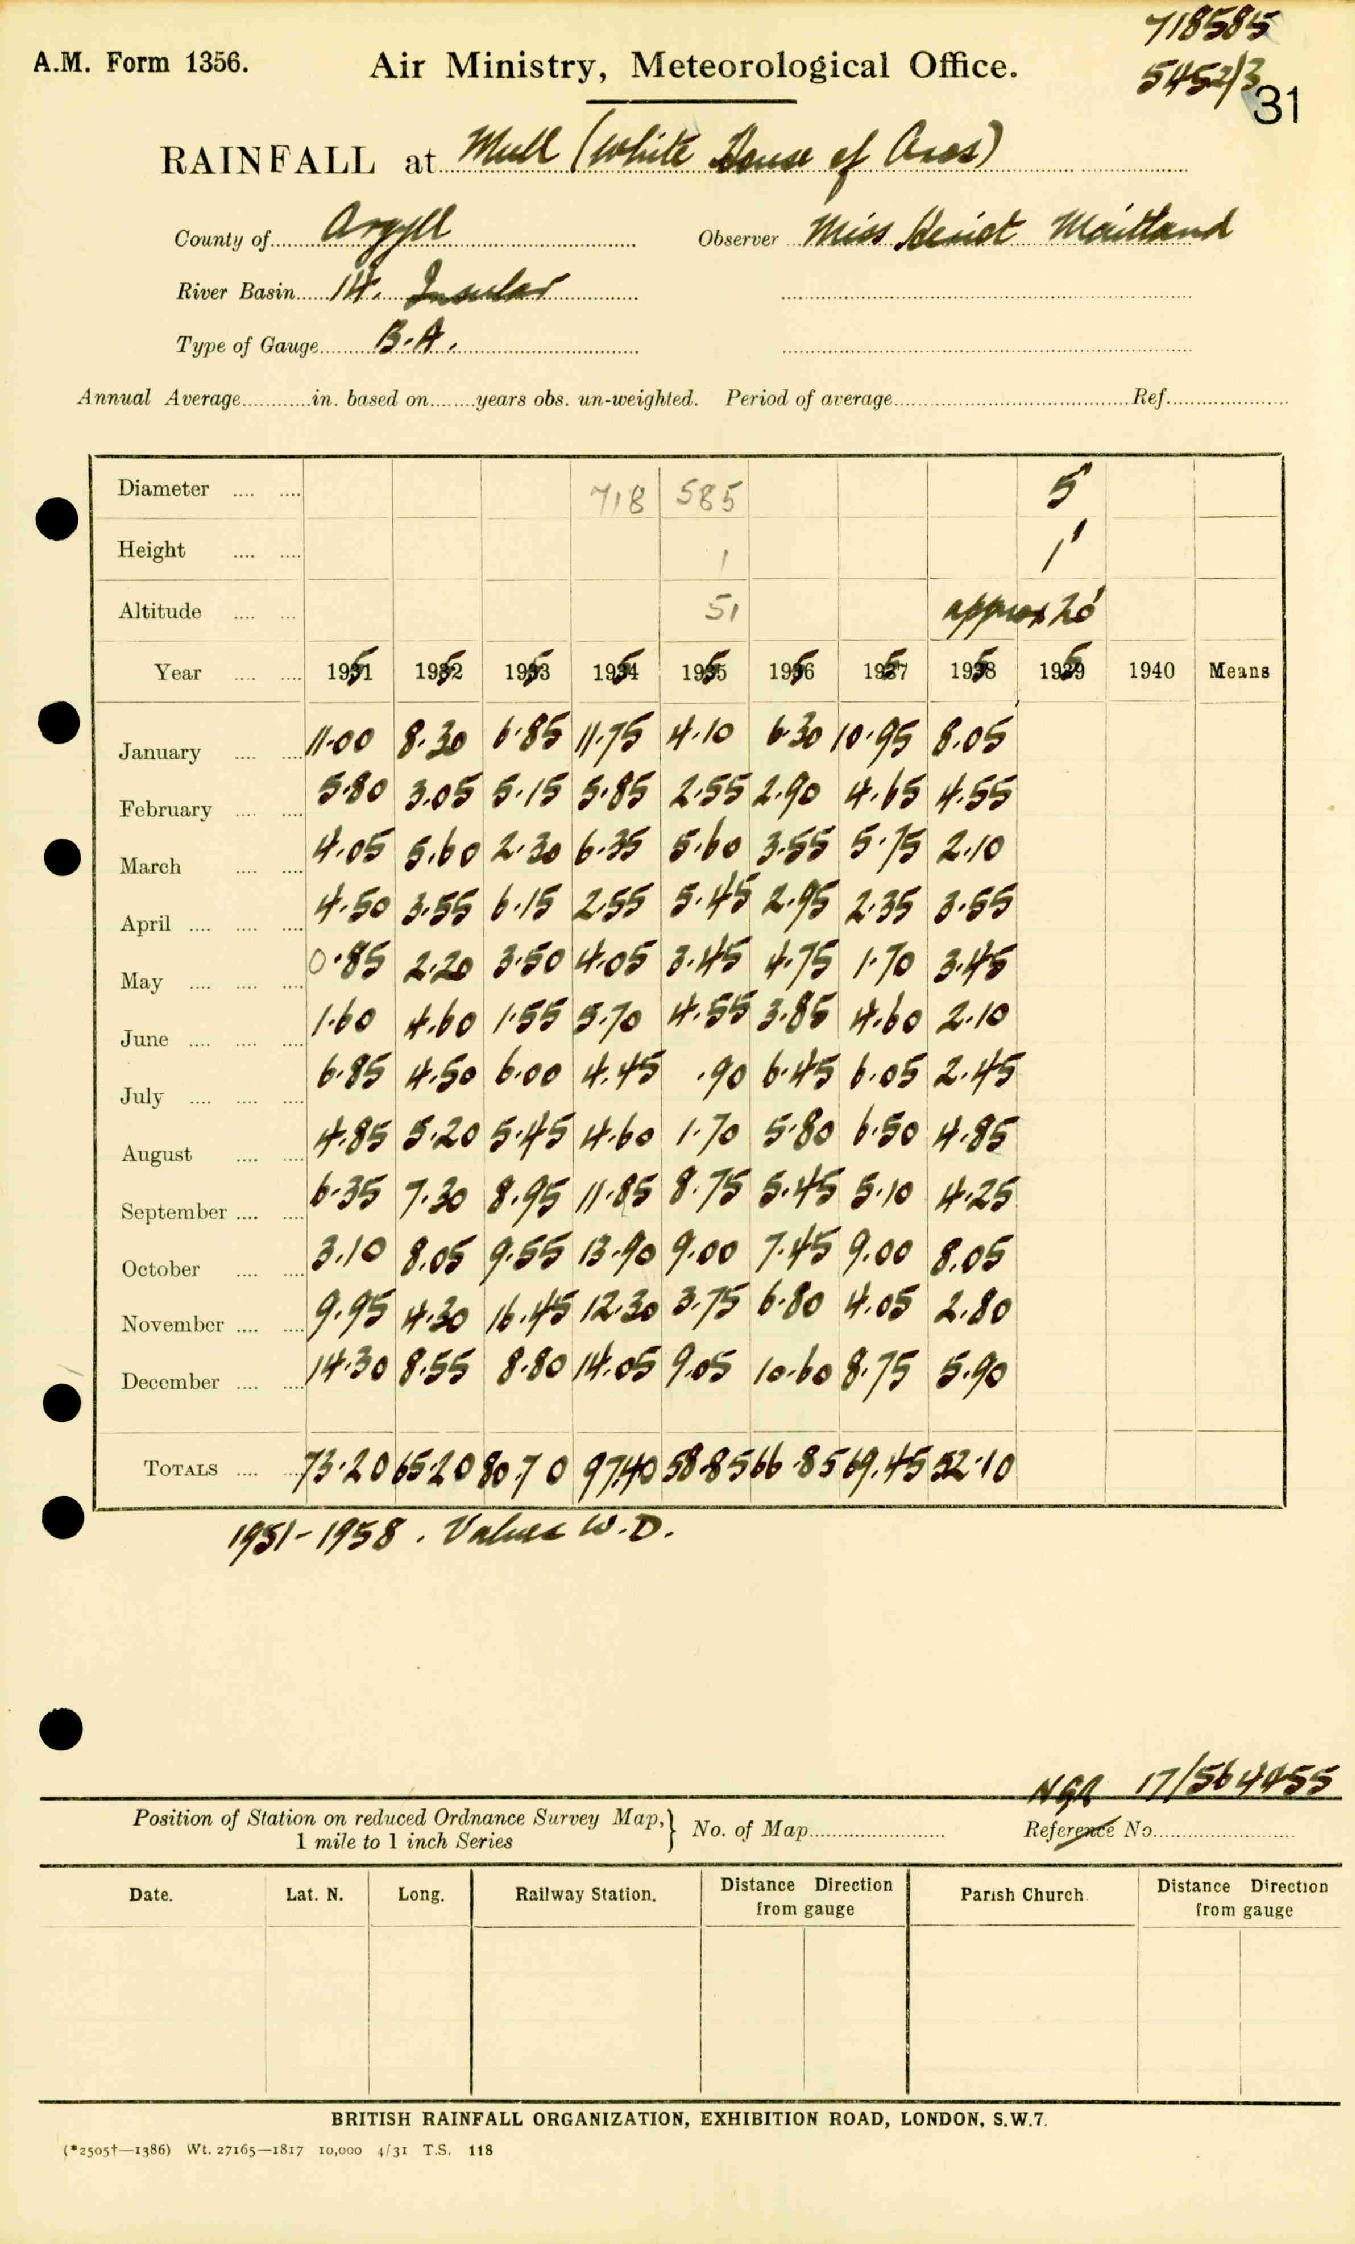 718585
A.M. Form 1356. Air Ministry, Meteorological Office. 5452/3
31
RAINFALL at Mull (White House of Aros)
County of Argyll Observer Miss Heriot Maitland
River Basin 14. Insular
Type of Gauge B.A.
Annual Average in. based on years obs. un-weighted. Period of average Ref.
Diameter 718 585 5"
Height 1 1'
Altitude 51 approx 20'
Year 1951 1952 1953 1954 1955 1956 1957 1958 1959 1940 Means
January 11.00 8.30 6.85 11.75 4.10 6.30 10.95 8.05
February 5.80 3.05 5.15 5.85 2.55 2.90 4.65 4.55
March 4.05 5.60 2.30 6.35 5.60 3.55 5.75 2.10
April 4.50 3.55 6.15 2.55 5.45 2.95 2.35 3.55
May 0.85 2.20 3.50 4.05 3.45 4.75 1.70 3.45
June 1.60 4.60 1.55 5.70 4.55 3.85 4.60 2.10
July 6.85 4.50 6.00 4.45 .90 6.45 6.05 2.45
August 4.85 5.20 5.45 4.60 1.70 5.80 6.50 4.85
September 6.35 7.30 8.95 11.85 8.75 5.45 5.10 4.25
October 3.10 8.05 9.55 13.90 9.00 7.45 9.00 8.05
November 9.95 4.30 16.45 12.30 3.75 6.80 4.05 2.80
December 14.30 8.55 8.80 14.05 9.05 10.60 8.75 5.90
TOTALS 73.20 65.20 80.70 97.40 58.85 66.85 69.45 52.10
1951-1958. Values W.D.
NGR 17/564455
Position of Station on reduced Ordnance Survey Map, } No. of Map Reference No.
1 mile to 1 inch Series
Date. Lat. N. Long. Railway Station. Distance Direction Parish Church. Distance Direction
from gauge from gauge
BRITISH RAINFALL ORGANIZATION, EXHIBITION ROAD, LONDON, S.W.7.
(*2505†—1386) Wt. 27165—1817 10,000 4/31 T.S. 118